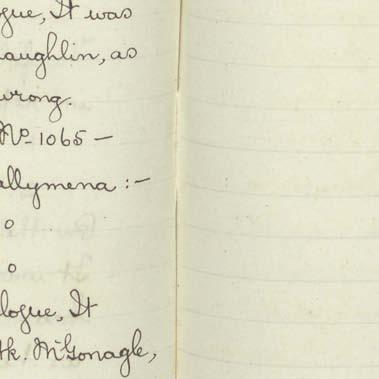 gue, It was
aughlin, as
wrong.
No 1065 —
allymena :—
o
o
logue, It
tk. McGonagle,